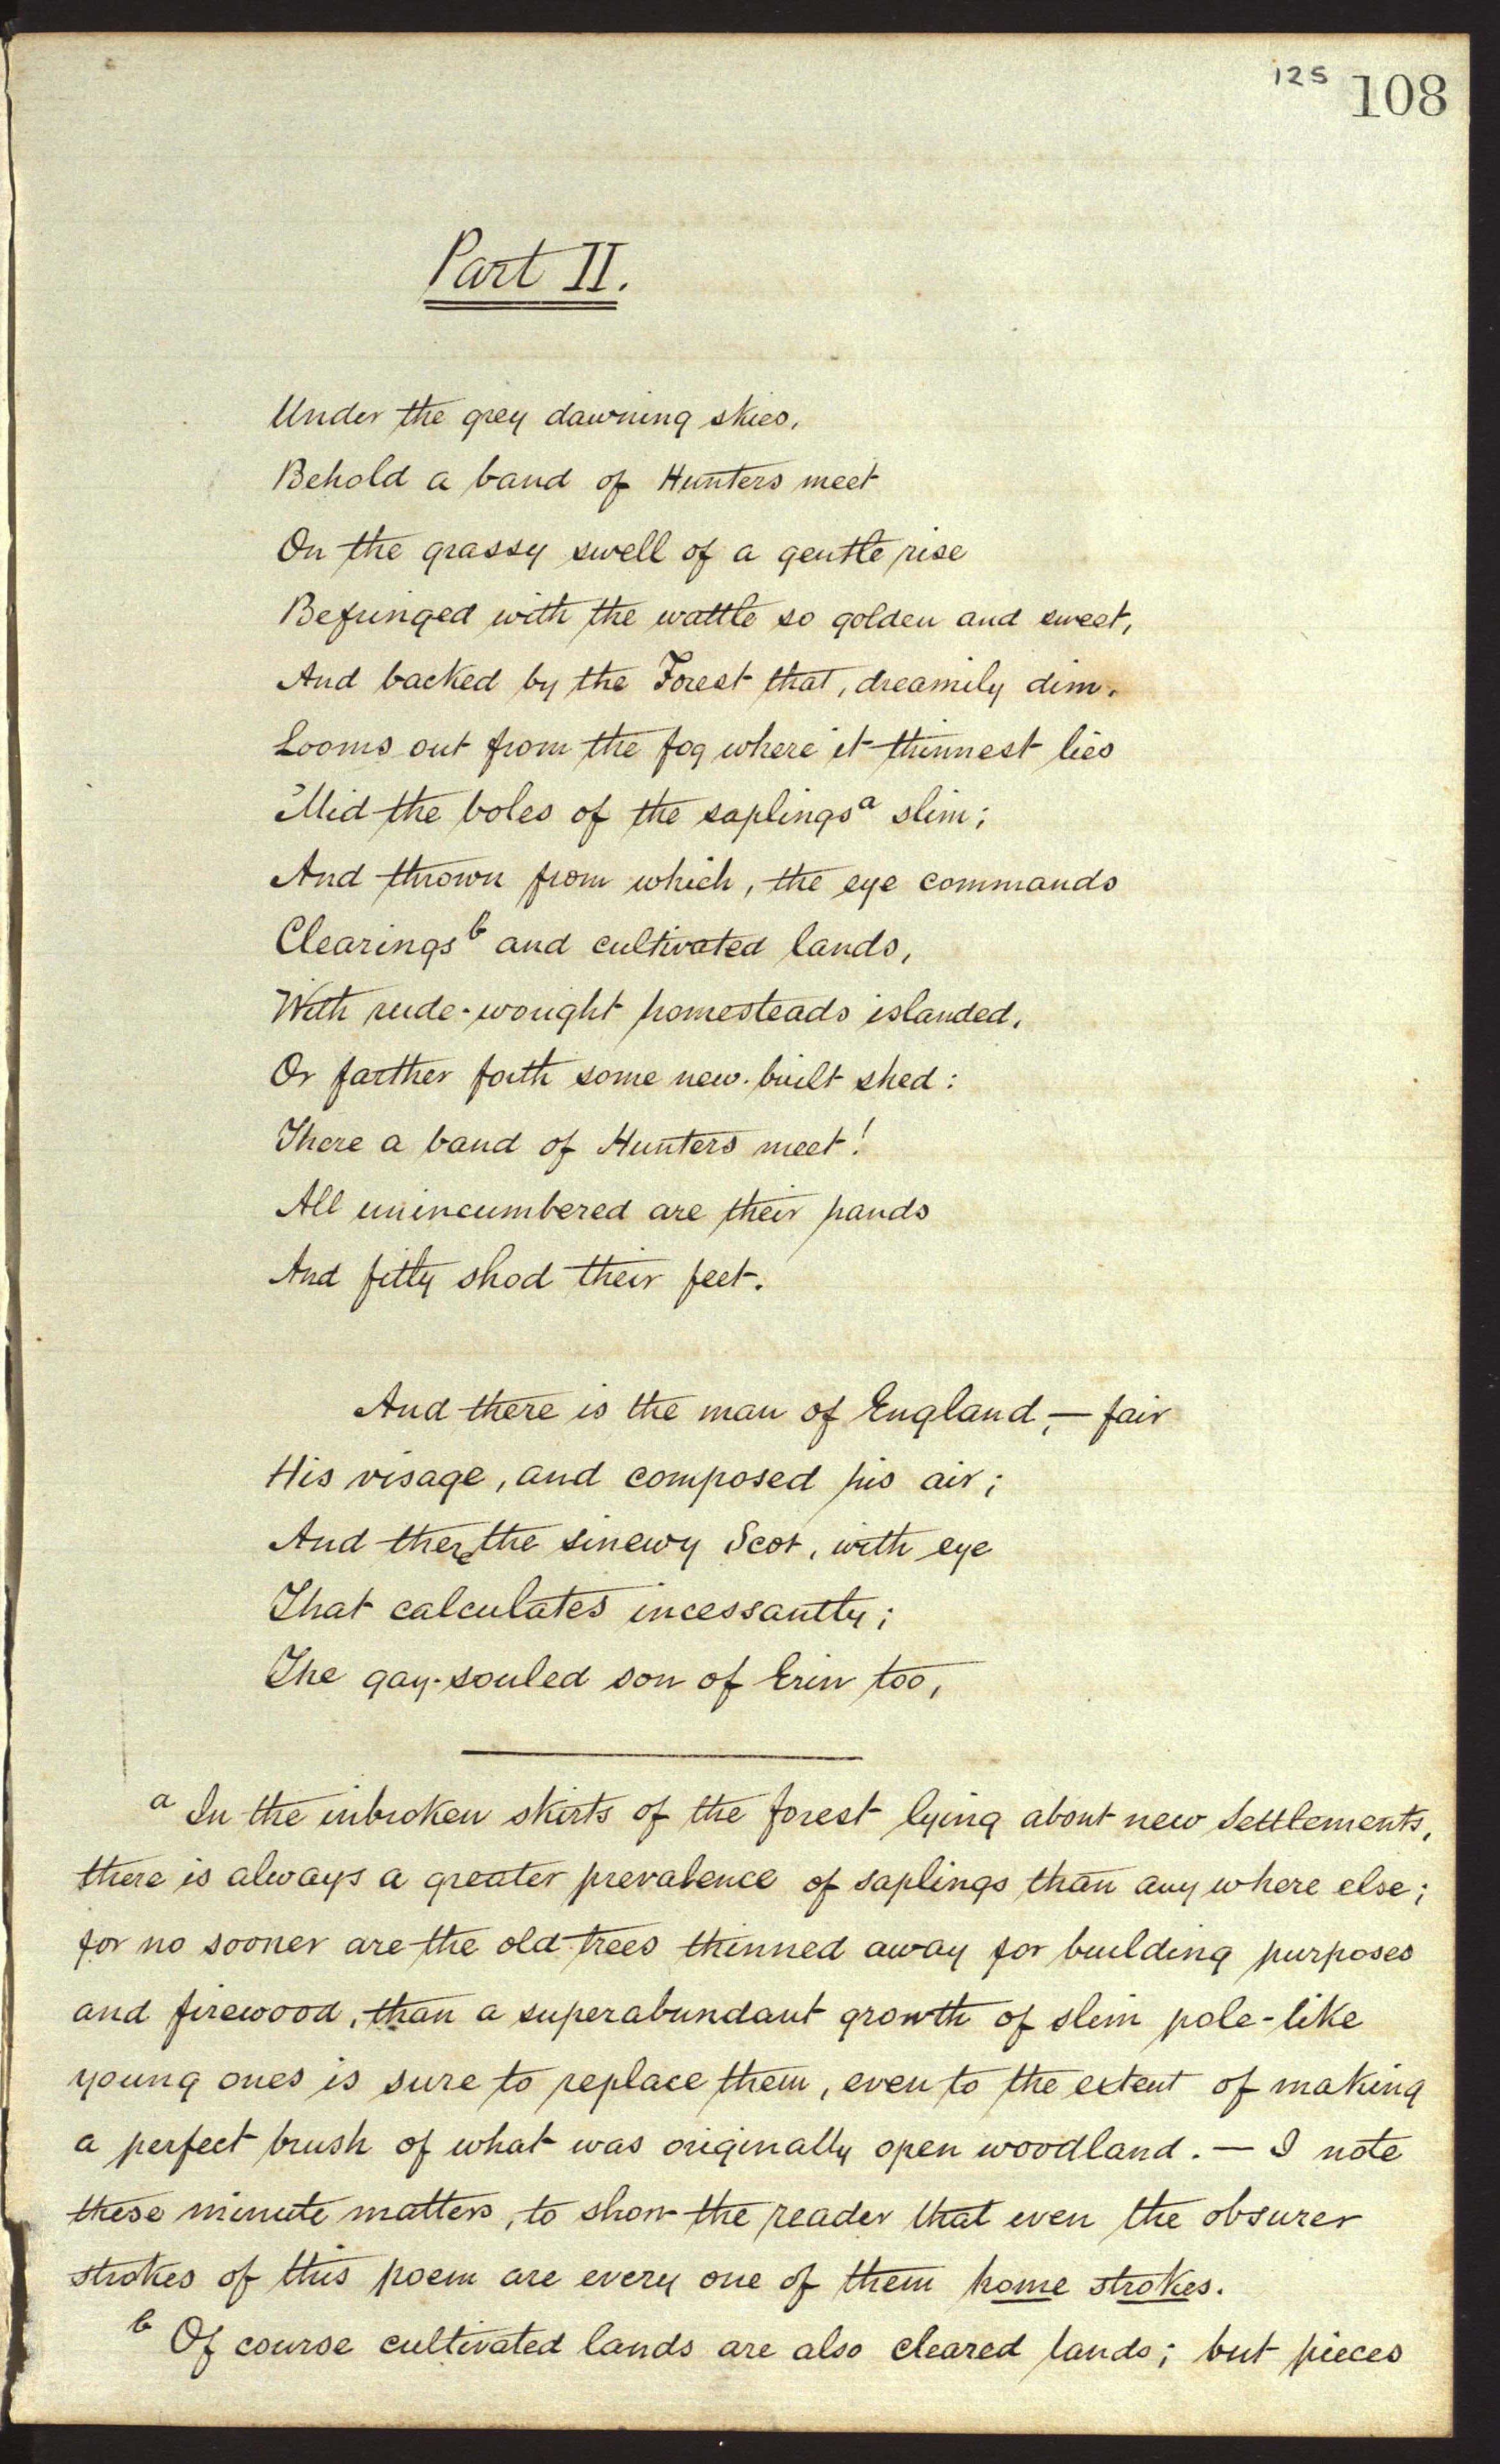 125 108
Part II.
Under the grey dawning skies,
Behold a band of Hunters meet
On the grassy swell of a gentle rise
Befringed with the wattle so golden and sweet,
And backed by the Forest that, dreamily dim,
Looms out from the fog where it thinnest lies
'Mid the boles of the saplings a slim;
And thrown from which, the eye commands
Clearings b and cultivated lands,
With rude-wrought homesteads islanded,
Or farther forth some new-built shed:
There a band of Hunters meet!
All unincumbered are their hands
And fitly shod their feet.
And there is the man of England,— fair
His visage, and composed his air;
And there the sinewy Scot, with eye
That calculates incessantly;
The gay-souled son of Erin too,
a In the inbroken skirts of the forest lying about new Settlements,
there is always a greater prevalence of saplings than any where else;
for no sooner are the old trees thinned away for building purposes
and firewood, than a superabundant growth of slim pole-like
young ones is sure to replace them, even to the extent of making
a perfect brush of what was originally open woodland. — I note
these minute matters, to show the reader that even the obsurer
strokes of this poem are every one of them home strokes.
b Of course cultivated lands are also cleared lands; but pieces